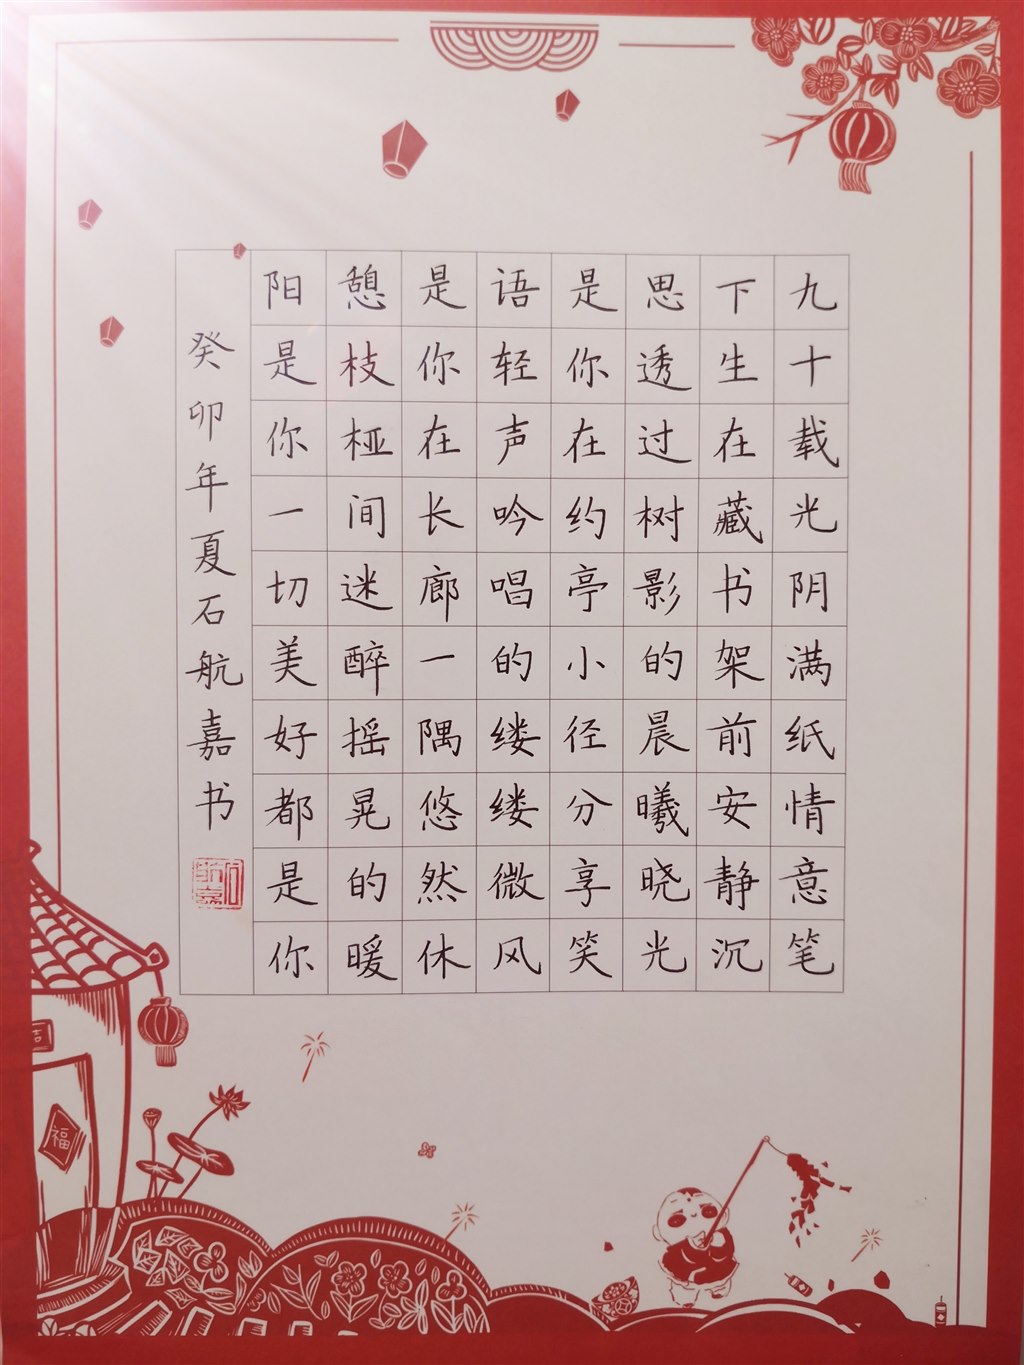 九十载光阴满纸情意笔
下生在藏书架前安静沉
思透过树影的晨曦晓光
是你在约亭小径分享笑
语轻声吟唱的缕缕微风
是你在长廊一隅悠然休
憩枝桠间迷醉摇晃的暖
阳是你一切美好都是你
癸卯年夏石航嘉书
福